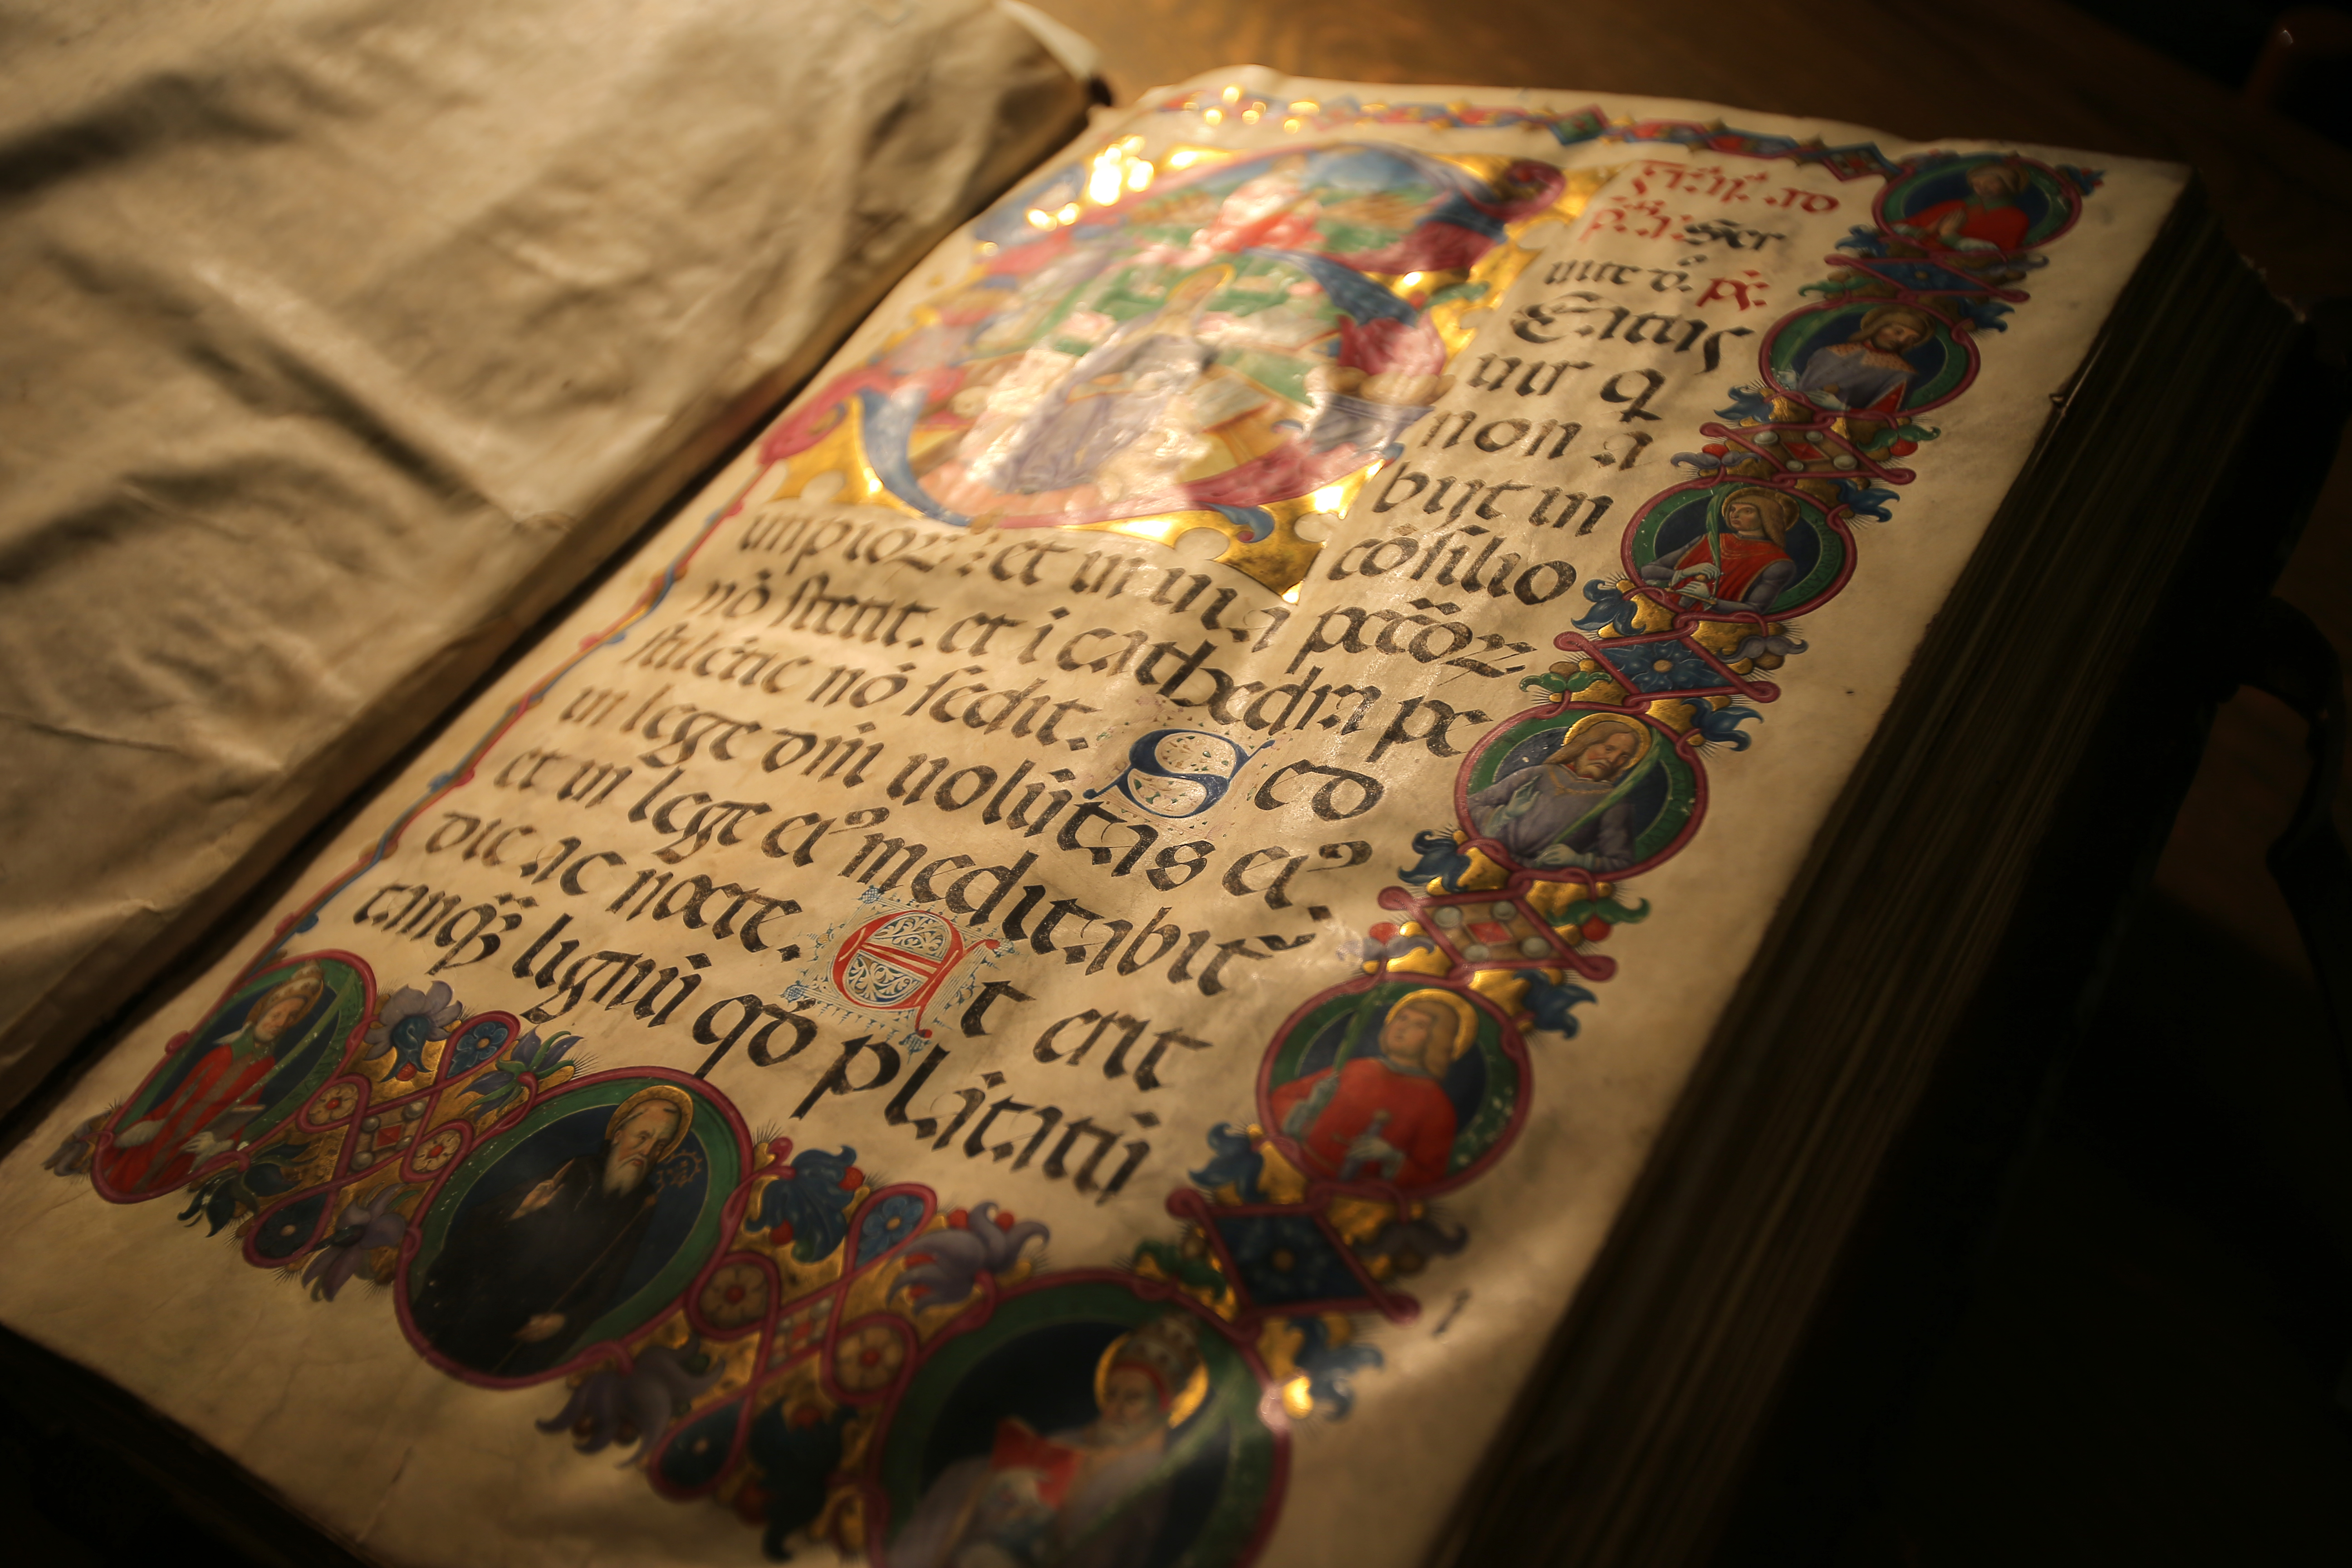 Ser
uite dῆo. ps.
Eatus
uir q
non a
bijt in
cōsilio
impioꝝ: et in uia peccōꝝ
nō stetit. et i cathedra pe
stilētie nō sedit. Sed
in lege dn̄i uolūtas ei⁹
et in lege ei⁹ meditabit̄
die ac nocte. Et erit
tanq̃ʒ lignū qd̄ plātatū
1